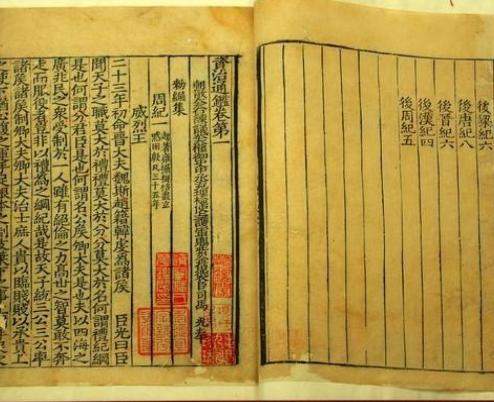 後梁紀六
後唐紀八
後晉紀六
後漢紀四
後周紀五
資治通鑑卷第一
朝散大夫右諫議大夫權御史中丞理檢使上護軍賜紫金魚袋臣司馬 光奉
勑編集
周紀一
凡三十五年
威烈王
二十三年初命晉大夫魏斯趙籍韓虔為諸侯 臣光曰臣
聞天子之職莫大於禮禮莫大於分分莫大於名何謂禮紀綱
是也何謂分君臣是也何謂名公侯卿大夫是也夫以四海之
廣兆民之衆受制於一人雖有絕倫之力高世之智莫敢不奔
走而服役者豈非以禮為之綱紀哉是故天子統三公三公率
諸侯諸侯制卿大夫卿大夫治士庶人貴以臨賤賤以承貴上
之使下猶心腹之運手足根本之制支葉下之事